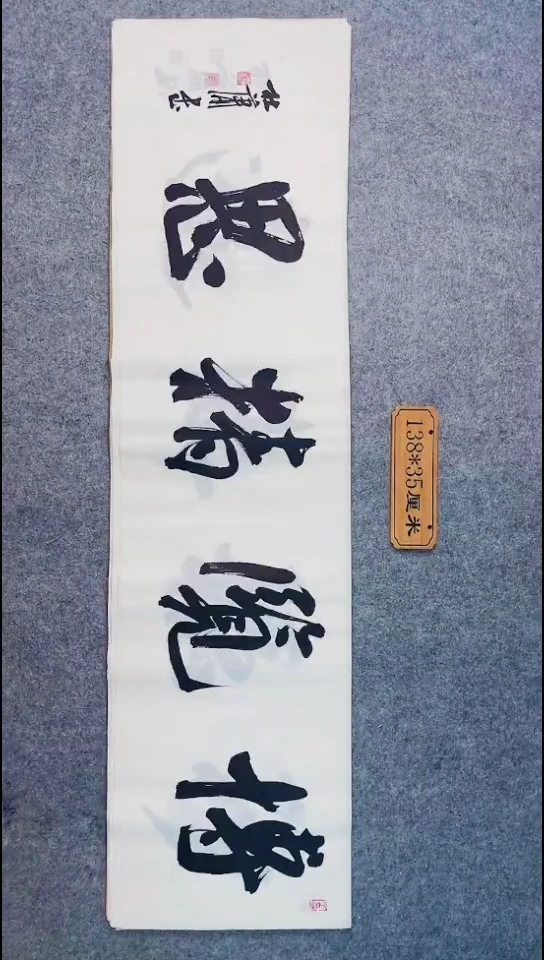 博览精思
138*35厘米